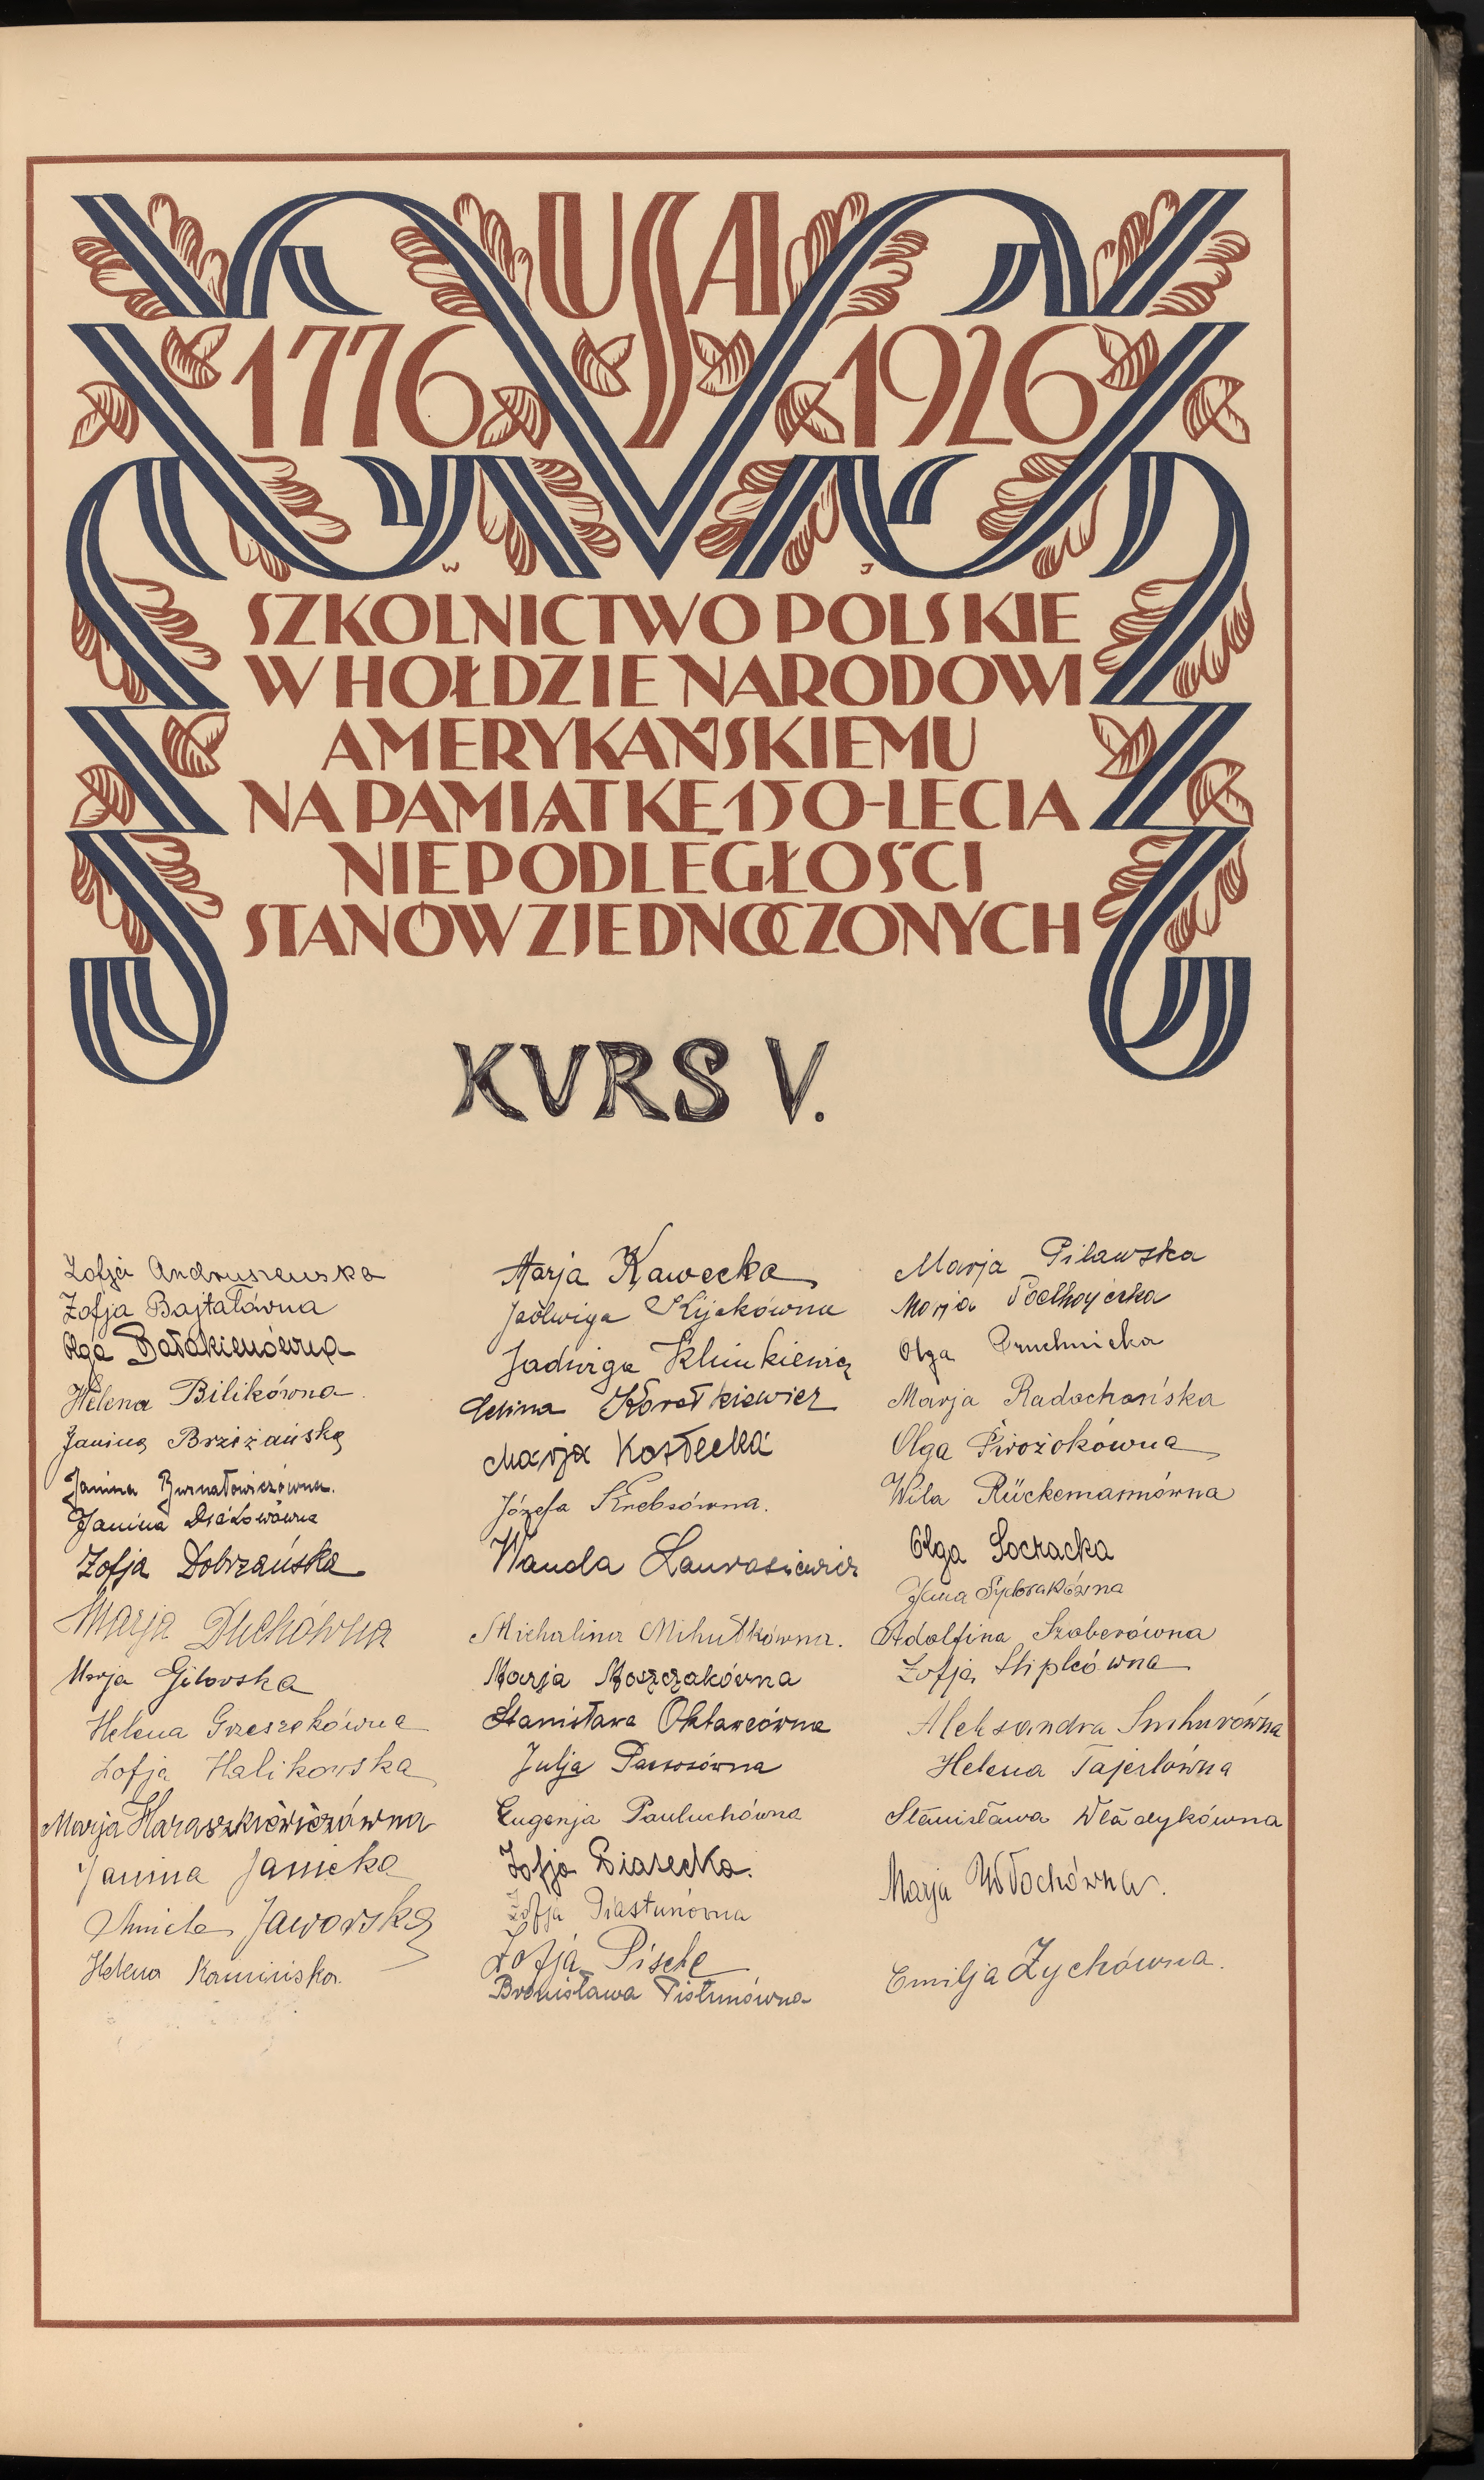 USA
1776 1926
W J
SZKOLNICTWO POLSKIE
W HOŁDZIE NARODOWI
AMERYKAŃSKIEMU
NA PAMIĄTKĘ 150-LECIA
NIEPODLEGŁOŚCI
STANÓW ZJEDNOCZONYCH
KVRS V.
Zofja Andruszewska
Zofja Bajtałówna
Olga
Helena Bilikówna
Janina Brzeżańska
Janina Burnatowiczówna.
Janina
Zofja Dobrzańska
Marja Duchówna
Marja Gilowska
Helena Grzeszekówna
Zofja Halikowska
Marja Haraszkiewiczówna
Janina Janicka
Aniela Jaworska
Helena Kamińska.
Marja Kawecka
Jadwiga Kijakówna
Jadwiga Klimkiewicz
Helina Korotkiewicz
Marja Kostecka
Józefa Krebsówna.
Wanda Laurosiewicz
Michalina Mihułkówna.
Marja Moszczakówna
Stanisława Oktawcówna
Julja
Eugenja Pauluchówna
Zofja Piasecka.
Zofja Piastunówna
Zofja Pischc
Bronisława Pistunówna
Marja Pilawska
Marja Podhajecka
Olga Pruchnicka
Marja Radochońska
Olga Pirożokówna
Wila Rückemannówna
Olga Soczacka
Jana
Adolfina Szaberówna
Zofja Stiplcówna
Aleksandra Smhurówna
Helena Tajerlówna
Stanisława Władykówna
Marja Włochówna.
Emilja Zychówna.